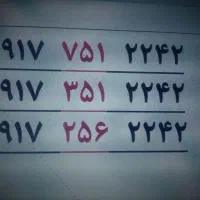 ۹۱۷ ۷۵۱ ۲۲۴۲
۹۱۷ ۳۵۱ ۲۲۴۲
۹۱۷ ۲۵۶ ۲۲۴۲